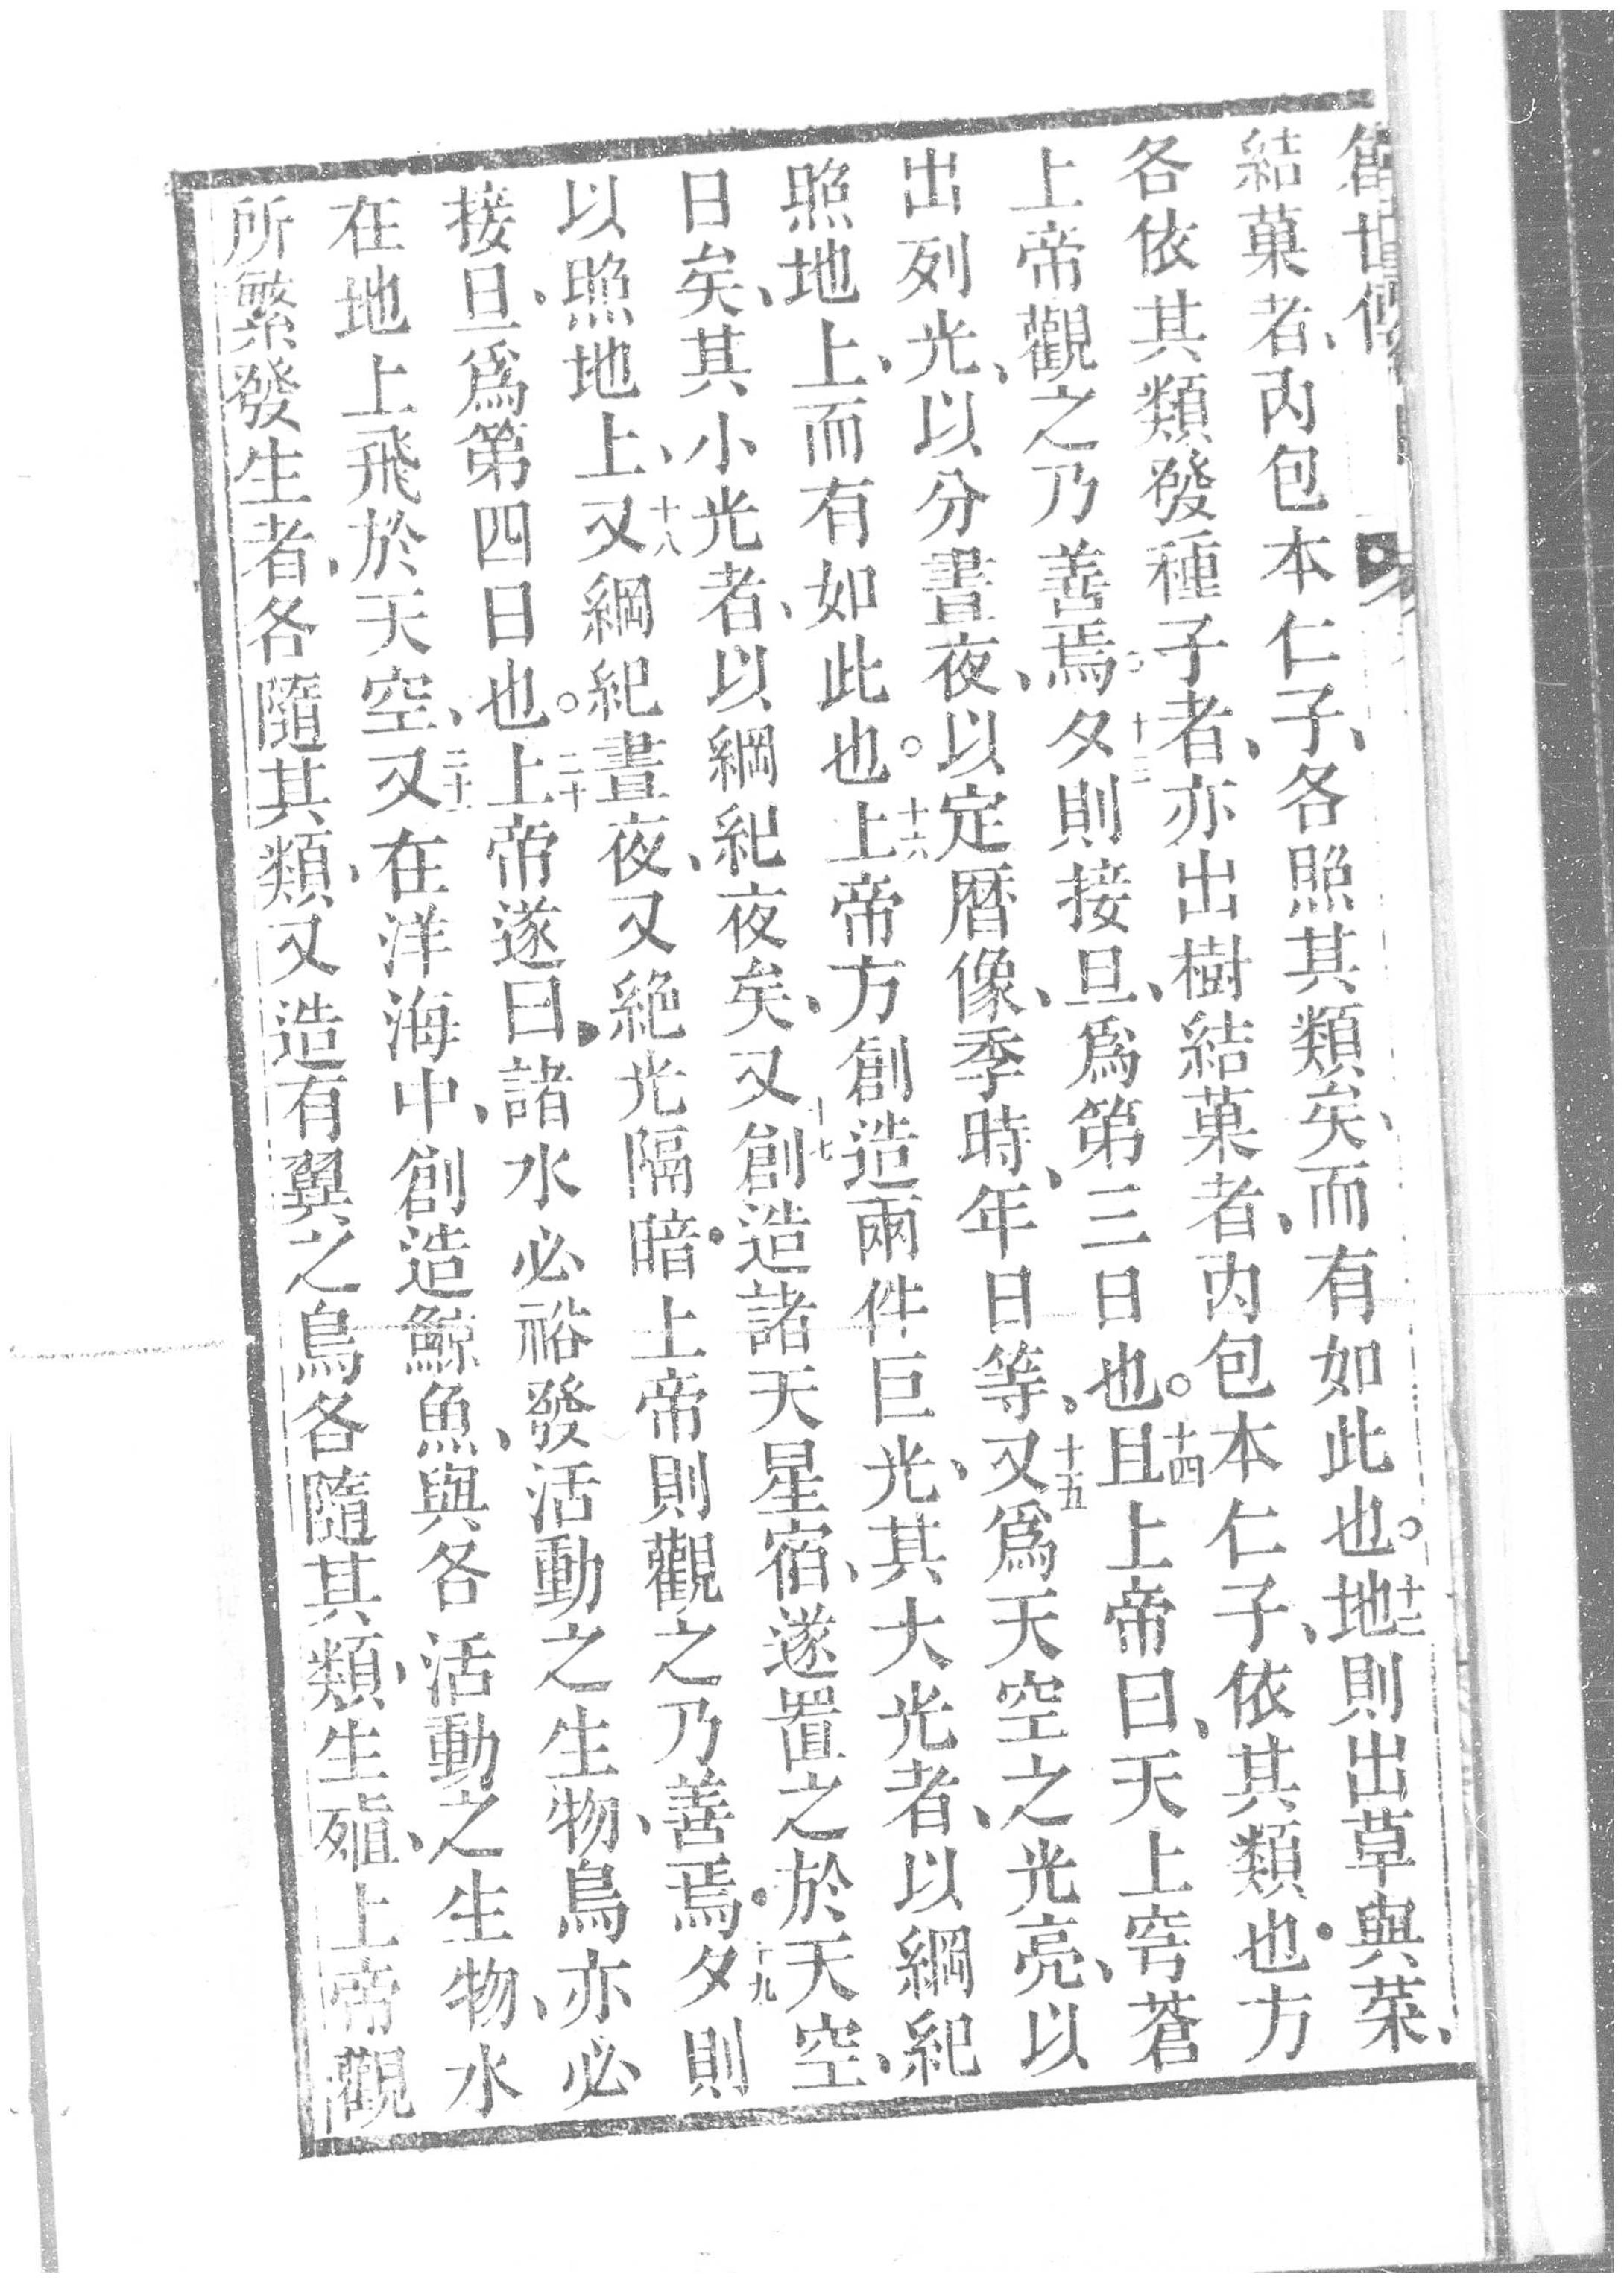 創世傳
結菓者、內包本仁子、各照其類矣、而有如此也。十二地則出草與菜、
各依其類發種子者、亦出樹結菓者、內包本仁子、依其類也•方
上帝觀之乃善焉。十三夕則接旦、爲第三日也。十四且上帝曰、天上穹蒼
出列光、以分晝夜、以定曆像、季時、年日等、十五又爲天空之光亮、以
照地上、而有如此也。十六上帝方創造兩件巨光、其大光者、以綱紀
日矣、其小光者、以綱紀夜矣、又十七創造諸天星宿、遂置之於天空、
以照地上、十八又綱紀晝夜、又絕光隔暗•上帝則觀之乃善焉•十九夕則
接旦、爲第四日也。二十上帝遂曰•諸水必裕發活動之生物、鳥亦必
在地上飛於天空、二十一又在洋海中、創造鯨魚、與各活動之生物、水
所繁發生者、各隨其類、又造有翼之鳥各隨其類、生殖、上帝觀